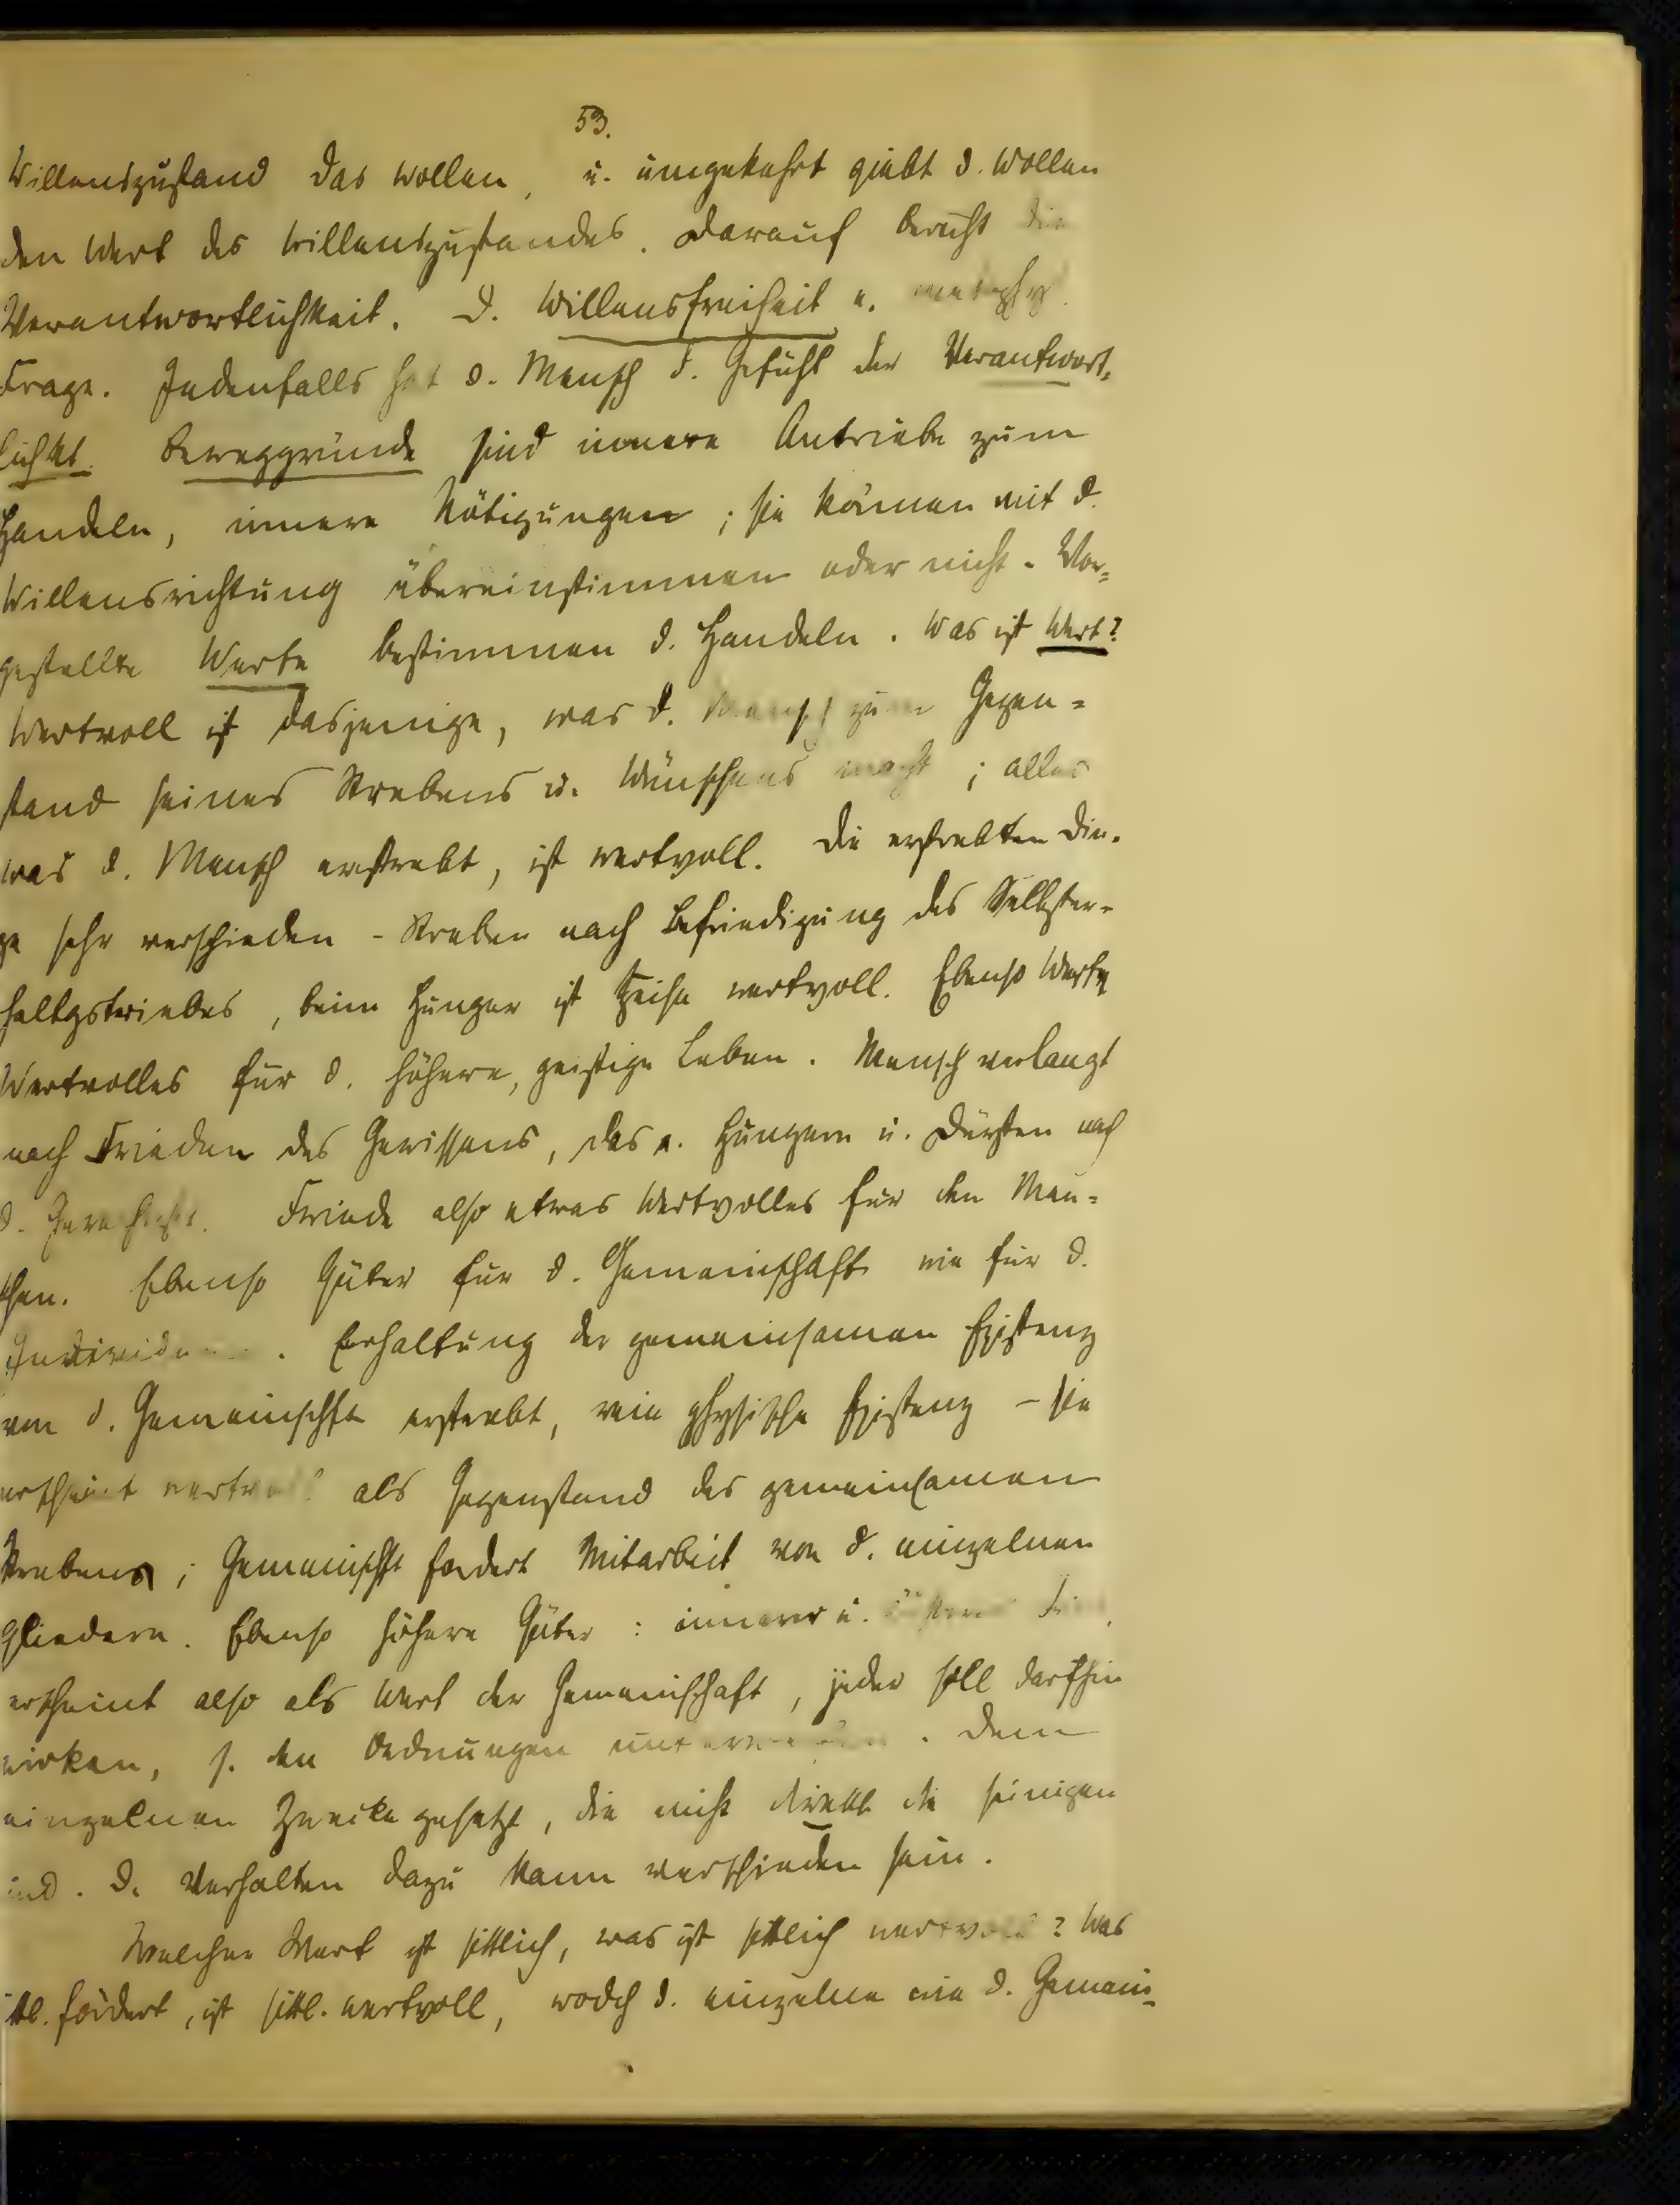 53.
Willenszustand das Wollen, u. umgekehrt giebt d. Wollen
den Wert des Willenszustandes. Darauf beruht die
Verantwortlichkeit. D. Willensfreiheit e. metaphys.
Frage. Jedenfalls hat d. Mensch d. Gefühl der Verantwort-
lichkt. Beweggründe sind innere Antriebe zum
Handeln, innere Nötigungen; sie können mit d.
Willensrichtung übereinstimmen oder nicht. Vor-
gestellte Werte bestimmen d. Handeln. Was ist Wert?
Wertvoll ist dasjenige, was d. Mensch zum Gegen-
stand seines Strebens u. Wünschens macht; alles
was d. Mensch erstrebt, ist wertvoll. Die erstrebten Din-
ge sehr verschieden - Streben nach Befriedigung des Selbster-
haltgstriebes, beim Hunger ist Speise wertvoll. Ebenso
Wertvolles für d. höhere, geistige Leben. Mensch verlangt
nach Frieden des Gewissens, das e. Hungern u. Dürsten nach
d. Friede also etwas Wertvolles für den Men-
schen. Ebenso Güter für d. Gemeinschaft wie für d.
Erhaltung der gemeinsamen Existenz
von d. Gemeinschft erstrebt, rein physische Existenz - sie
erscheint wertvoll als Gegenstand des gemeinsamen
Strebens; Gemeinschft fordert Mitarbeit von d. einzelnen
Gliedern. Ebenso höhere Güter: innerer u.
erscheint also als Wert der Gemeinschaft, jeder soll
wirken, s. den Ordnungen . Dem
einzelnen Zwecke gesetzt, die nicht direkt die seinigen
sind. D. Verhalten dazu kann verschieden sein.
Welcher Wert ist sittlich, was ist sittlich wertvoll? Was
sittl. fördert, ist sittl. wertvoll, wodch d. einzelne wie d. Gemein-